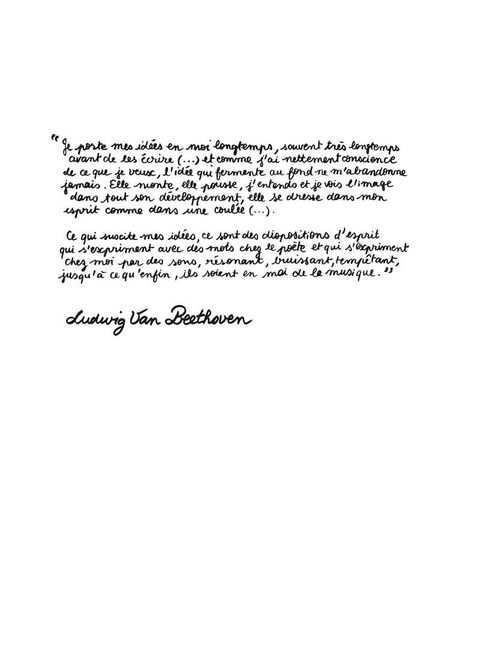 “Je porte mes idées en moi longtemps, souvent très longtemps
avant de les écrire (...) et comme j'ai nettement conscience
de ce que je veux, l'idée qui fermente au fond ne m'abandonne
jamais. Elle monte, elle pousse, j'entends et je vois l'image
dans tout son développement, elle se dresse dans mon
esprit comme dans une coulée (...).
Ce qui suscite mes idées, ce sont des dispositions d'esprit
qui s'expriment avec des mots chez le poète et qui s'expriment
chez moi par des sons, résonant, bruissant, tempêtant,
jusqu'à ce qu'enfin, ils soient en moi de la musique.”
Ludwig Van Beethoven